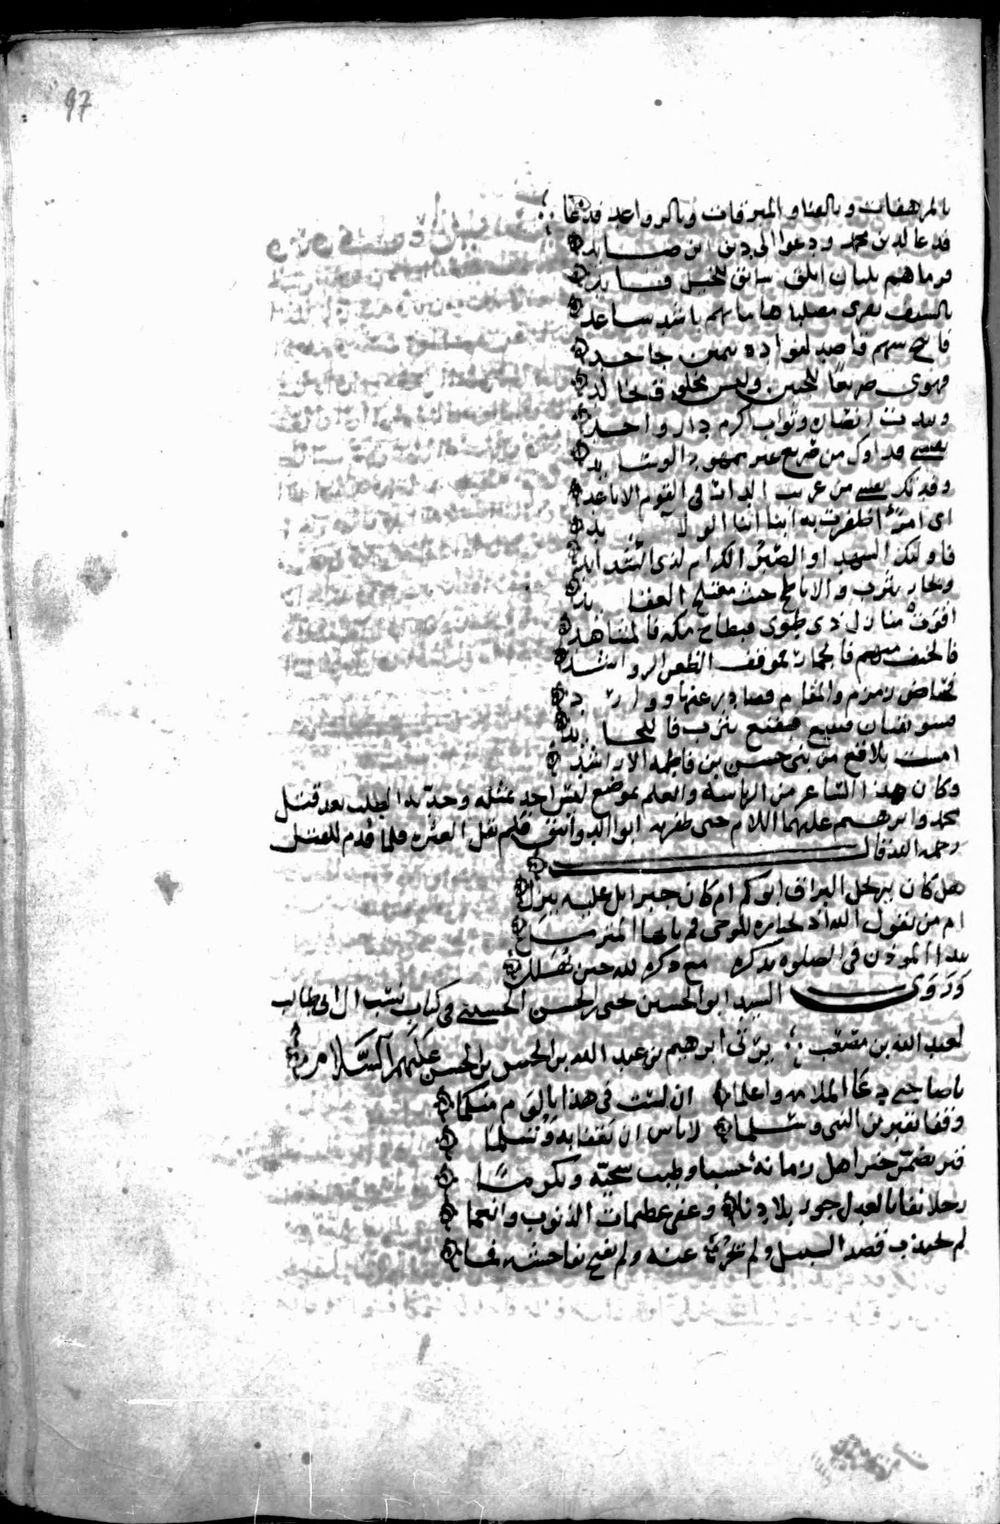 97
بالمرهفات وبالقنا و المبرقات وبالرواعد قدعا
قدعا لدين محمد ودعوا الى دين ابن صايد
فرماهم بلبان ابلق سابق للخيل
بالسيف يفرى مصلتا هاماتهم باشد ساعد
فاتيح سهم قاصد لفواده بيمين جاحد
فهوى صريعا للجبين وليس مخلوق بخالد
وتبددت انصاره وثوى باكرم دار واحد
نفسي فداوك من صريع غير ممهود الوسايد
وفدتك نفسي من غريب الدار في القوم الاباعد
اى امرء ظفرت به ابنا ابنا الولايد
فاولئك الشهدا والصبر الكرام لدى الشدايد
ونجار يثرب والاباطح حيث معتلج العقايد
اقوت منازل ذى طوى فبطاح مكة فالمشاهد
فالخيف منهم فالجمار بموقف الظعن الرواشد
فحياض زمزم والمقام فصادر عنها ووارد
فسويقتان فينبع فبقيع يثرب فاللحايد
امست بلاقع من بنى حسن بن فاطمة الاراشد
وكان هذا الشاعر من الرياسة والعلم بموضع ليس احد بمثله وجد به الطلب بعد قتل
محمد وابرهيم عليهما السلام حتى ظفر به ابو الدوانيق فلم يقل العثره فلما قدم للقتل
رحمه الله قال
هل كان يرتحل البراق ابوكم ام كان جبرائل عليه ينزل
ام من يقول الله اذ يختاره للوحى قم يا ايها المزمل
يبدا الموذن في الصلوه بذكره مع ذكره لله حين يهلل
وروى السيد ابو الحسين يحيى بن الحسن الحسيني في كتاب نسب ال ابي طالب
لعبد الله بن مصعب يرثى ابرهيم بن عبد الله بن الحسن بن الحسن عليهم السلام
ياصاحبي دعا الملامه واعلما ان لست في هذا بالوم منكما
وقفا بقبر ابن النبي وسلما لا باس ان تقفا به وتسلما
قبر تضمن خير اهل زمانه حسبا وطيب سجية وتكرما
رجلا نفا بالعدل جور بلادنا وعفى عظيمات الذنوب وانعما
لم يجتنب قصد السبيل ولم يجر عنه ولم يفتح بفاحشة فما